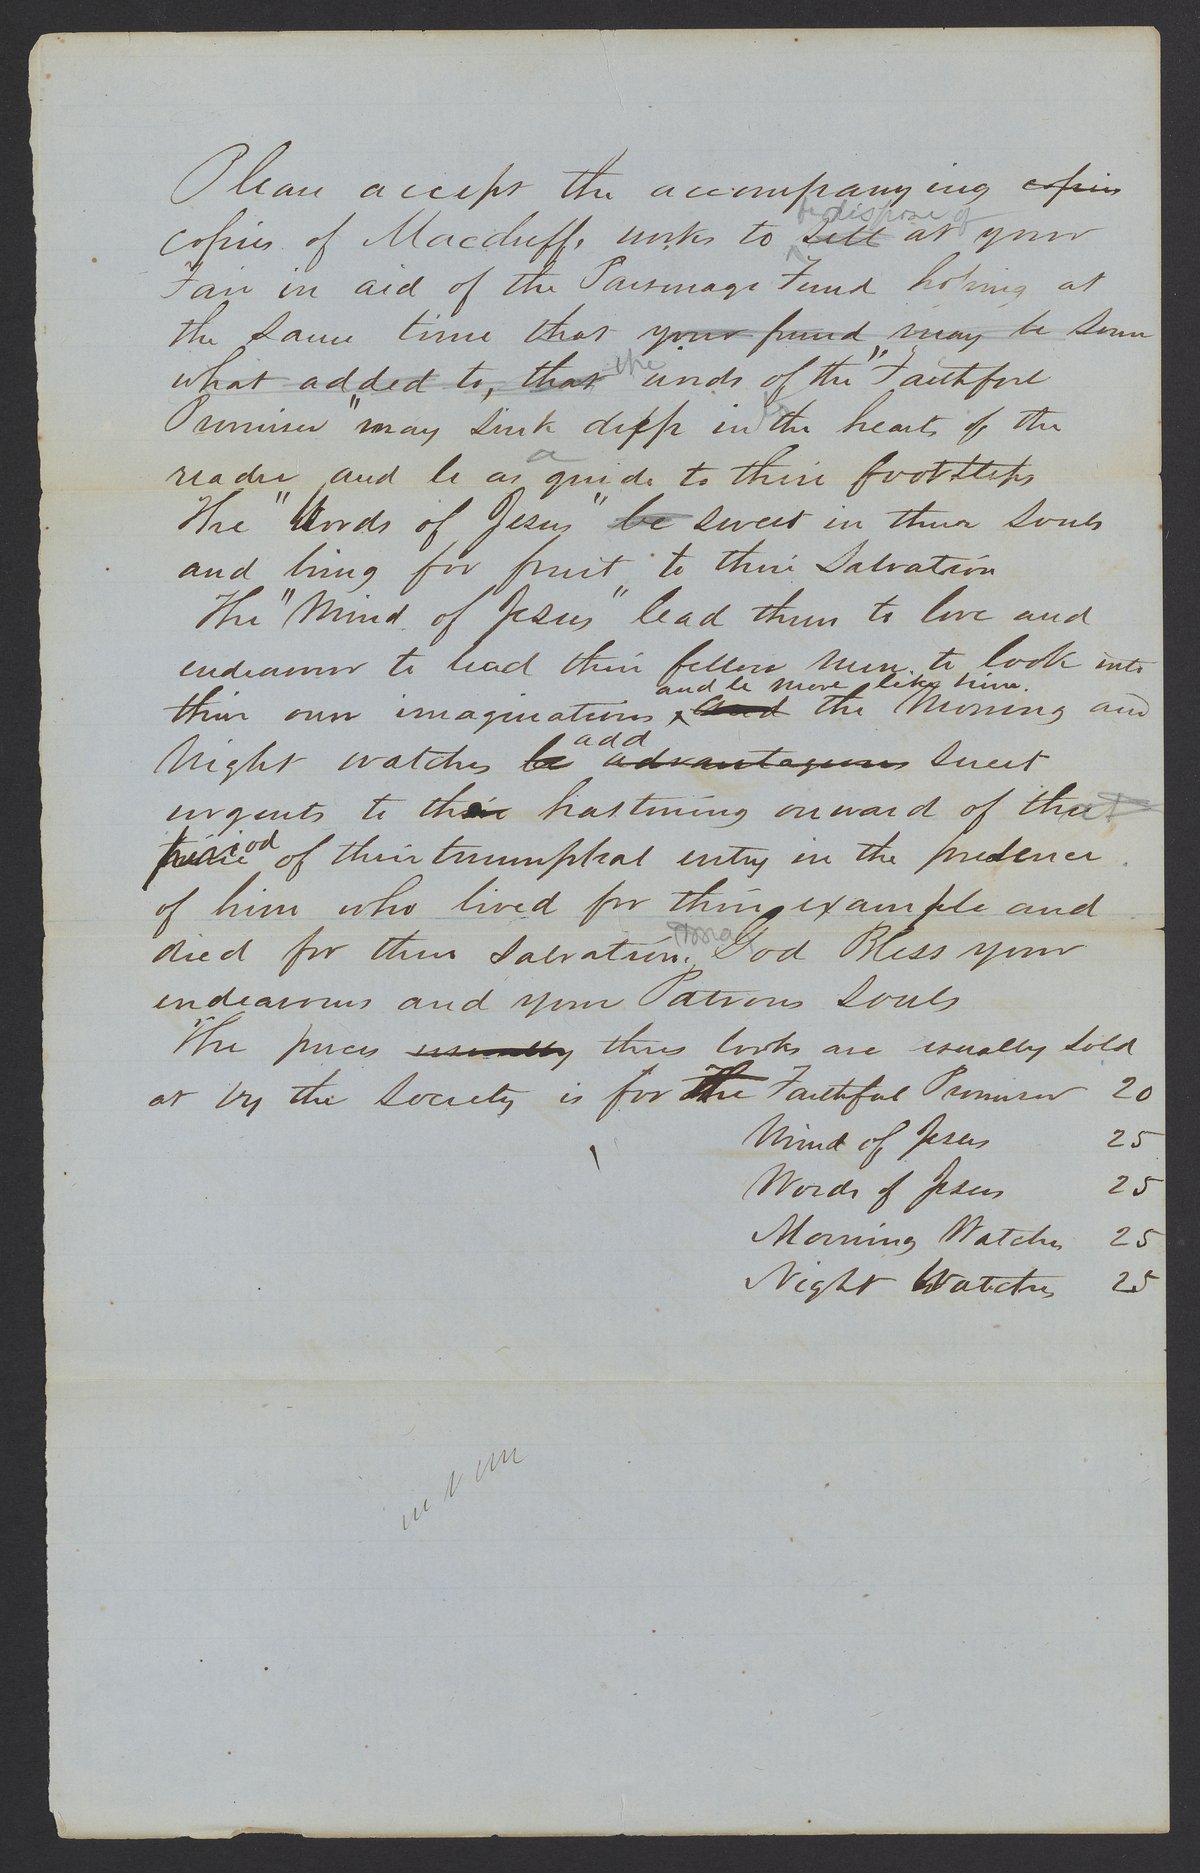 Please accept the accompanying copies
be dispose of
copies of Macduffs works to sell at your
Fair in aid of the Parsonage Fund hoping at
the same time that your fund may be some
what added to, that the words of the "Faithful
Promiser" may sink deep in to the hearts of the
reader and be as a guide to their footsteps
The "Words of Jesus" be sweet in their souls
and bring for fruit to their Salvation
The "Mind of Jesus" lead them to love and
endeavour to lead their fellow men to look into
and be more like him.
their own imaginations, and the Morning and
add
Night watches be advantageous sweet
urgents to their hastening onward of that
period of their triumphal entry in the presence
of him who lived for their example and
may
died for their salvation. God Bless your
endeavours and your Patrons souls
The prices usually thes books are usually sold
at by the Society is for The Faithful Promiser 20
Mind of Jesus 25
Words of Jesus 25
Morning Watches 25
Night Watches 25